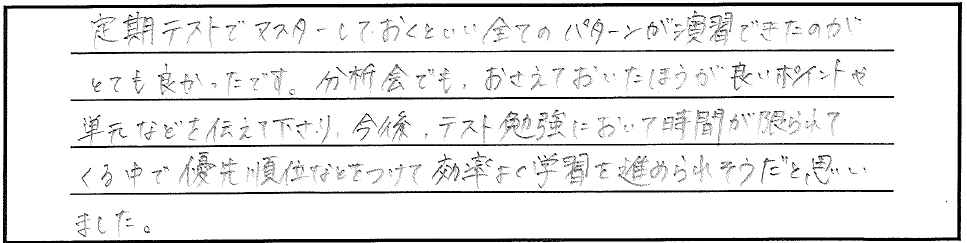 定期テストでマスターしておくといい全てのパターンが演習できたのが
とても良かったです。分析会でも、おさえておいたほうが良いポイントや
単元などを伝えて下さり、今後、テスト勉強において時間が限られて
くる中で優先順位などをつけて効率よく学習を進められそうだと思い
ました。